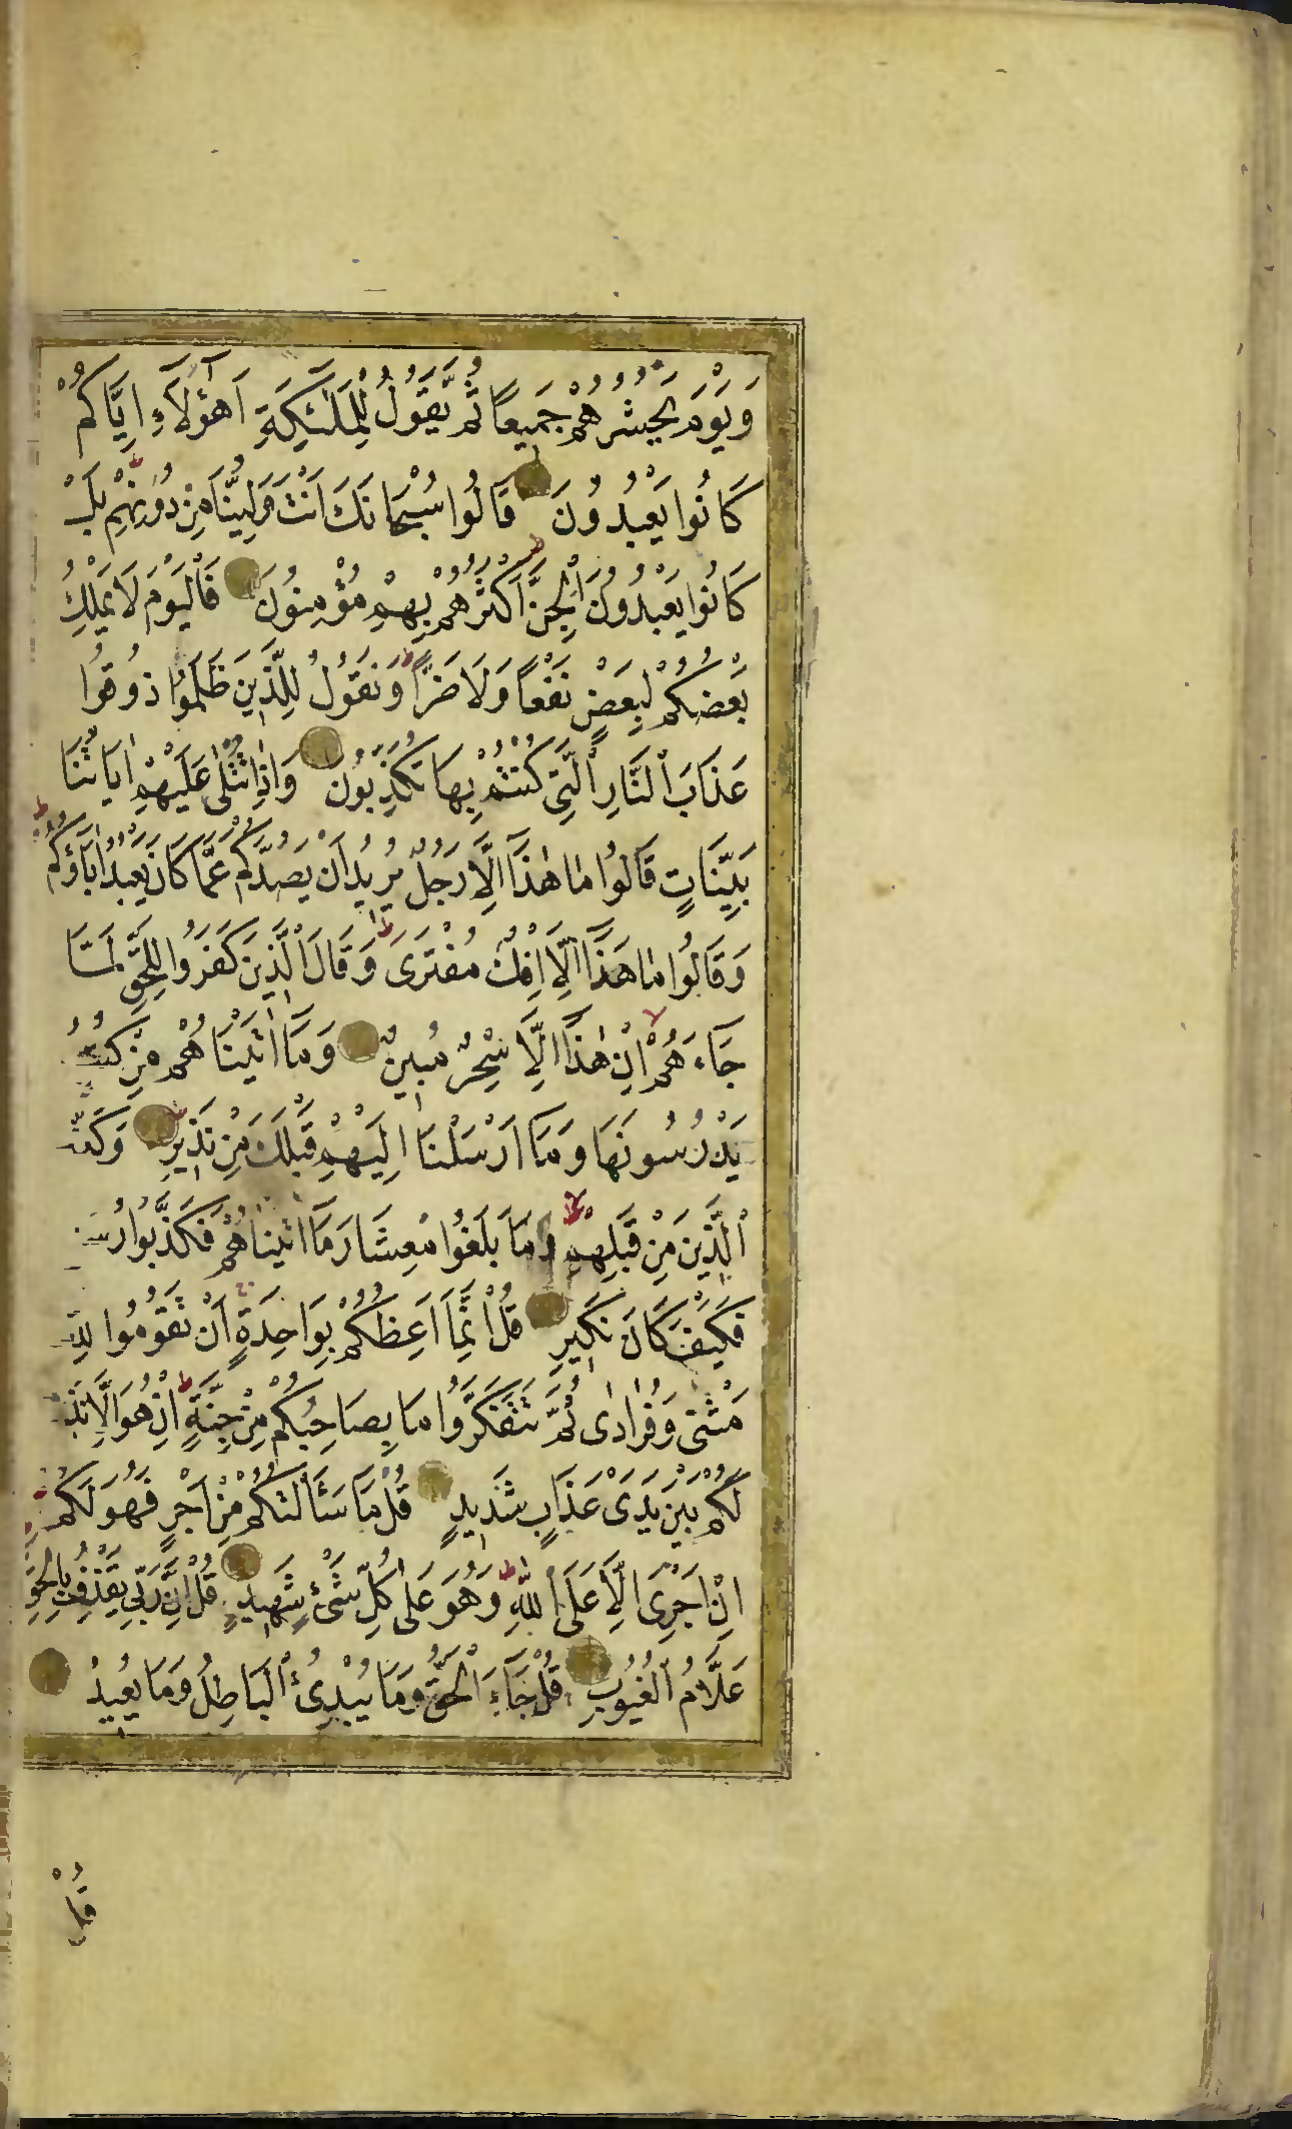 وَيَوْمَ يَحْشُرُهُمْ جَمِيعًا ثُمَّ يَقُولُ لِلْمَلٰئِكَةِ اَهٰٓؤُلَآءِ اِيَّاكُمْ
كَانُوا يَعْبُدُونَ قَالُوا سُبْحَانَكَ اَنْتَ وَلِيُّنَا مِنْ دُونِهِمْ بَلْ
كَانُوا يَعْبُدُونَ الْجِنَّ اَكْثَرُهُمْ بِهِمْ مُؤْمِنُونَ فَالْيَوْمَ لَا يَمْلِكُ
بَعْضُكُمْ لِبَعْضٍ نَفْعًا وَلَا ضَرًّا وَنَقُولُ لِلَّذِينَ ظَلَمُوا ذُوقُوا
عَذَابَ النَّارِ الَّتِي كُنْتُمْ بِهَا تُكَذِّبُونَ وَاِذَا تُتْلٰى عَلَيْهِمْ اٰيَاتُنَا
بَيِّنَاتٍ قَالُوا مَا هٰذَا اِلَّا رَجُلٌ يُرِيدُ اَنْ يَصُدَّكُمْ عَمَّا كَانَ يَعْبُدُ اٰبَاؤُكُمْ
وَقَالُوا مَا هَذَآ اِلَّآ اِفْكٌ مُفْتَرًى وَقَالَ الَّذِينَ كَفَرُوا لِلْحَقِّ لَمَّا
جَاءَهُمْ اِنْ هٰذَآ اِلَّا سِحْرٌ مُبِينٌ وَمَآ اٰتَيْنَاهُمْ مِنْ كُتُبٍ
يَدْرُسُونَهَا وَمَآ اَرْسَلْنَا اِلَيْهِمْ قَبْلَكَ مِنْ نَذِيرٍ وَكَذَّبَ
الَّذِينَ مِنْ قَبْلِهِمْ وَمَا بَلَغُوا مِعْشَارَ مَآ اٰتَيْنَاهُمْ فَكَذَّبُوا رُسُلِي
فَكَيْفَ كَانَ نَكِيرِ قُلْ اِنَّمَآ اَعِظُكُمْ بِوَاحِدَةٍ اَنْ تَقُومُوا لِلّٰهِ
مَثْنٰى وَفُرَادٰى ثُمَّ تَتَفَكَّرُوا مَا بِصَاحِبِكُمْ مِنْ جِنَّةٍ اِنْ هُوَ اِلَّا نَذِيرٌ
لَكُمْ بَيْنَ يَدَيْ عَذَابٍ شَدِيدٍ قُلْ مَا سَاَلْتُكُمْ مِنْ اَجْرٍ فَهُوَ لَكُمْ
اِنْ اَجْرِيَ اِلَّا عَلَى اللّٰهِ وَهُوَ عَلٰى كُلِّ شَيْءٍ شَهِيدٌ قُلْ اِنَّ رَبِّي يَقْذِفُ بِالْحَقِّ
عَلَّامُ الْغُيُوبِ قُلْ جَآءَ الْحَقُّ وَمَا يُبْدِئُ الْبَاطِلُ وَمَا يُعِيدُ
قُلْ